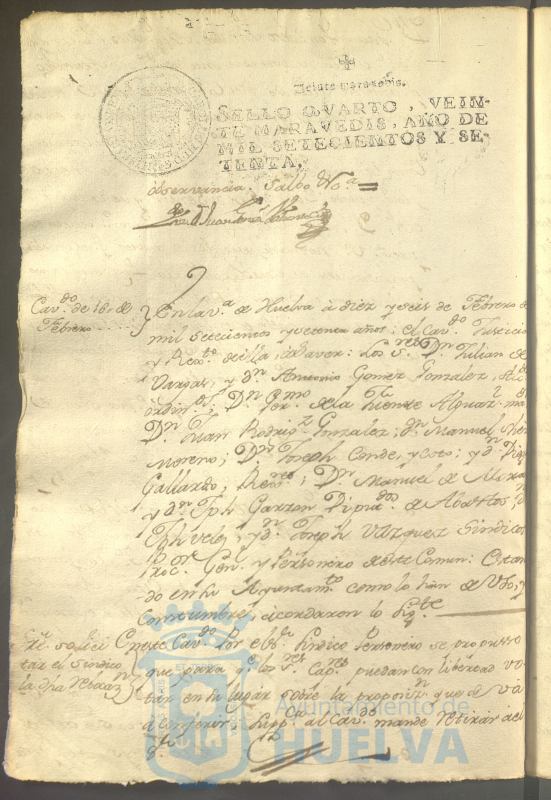 SELLO QVARTO, VEIN-
TE MARAVEDIS, AÑO DE
MIL SETECIENTOS Y SE-
TENTA.
observancia. Salbo
Cav.do de 16. de
Febrero
En la v.a de Huelva à diez y seis de Febrero de
mil setecientos y setenta años: el Cav.do Justicia
y Rex.to de ella, à saver: Los S.res D.n Julian de
Vargas, y d.n Antonio Gomez Gonzalez, Alc.
ordin.s; D.n de la Fuente Alguaz.l
D.n Juan Rodrig.z Gonzalez; d.n Manuel
Moreno; D.n Joseph Conde, y Coto; y d.n
Gallardo, Rex.res; D.n Manuel de
y d.n Jph Garzon Diputa.dos de Abastos;
Jph Velez, y d.n Joseph Vazquez Sindicos
Proc.or Gen.l y Personero de este Comun: Estan-
do en su Ayuntam.to como lo han de Uso, y
Costumbre, acordaron lo sig.te
En este Cav.do Por el S.r Sindico Personero se propuso
que para q.e los S.res Cap.res puedan con libertad vo-
tar en su lugar sobre la proposiz.n que và
à conferir, supp.co al Cav.do mande retirar
tar el Sindico
Ayuntamiento de
HUELVA